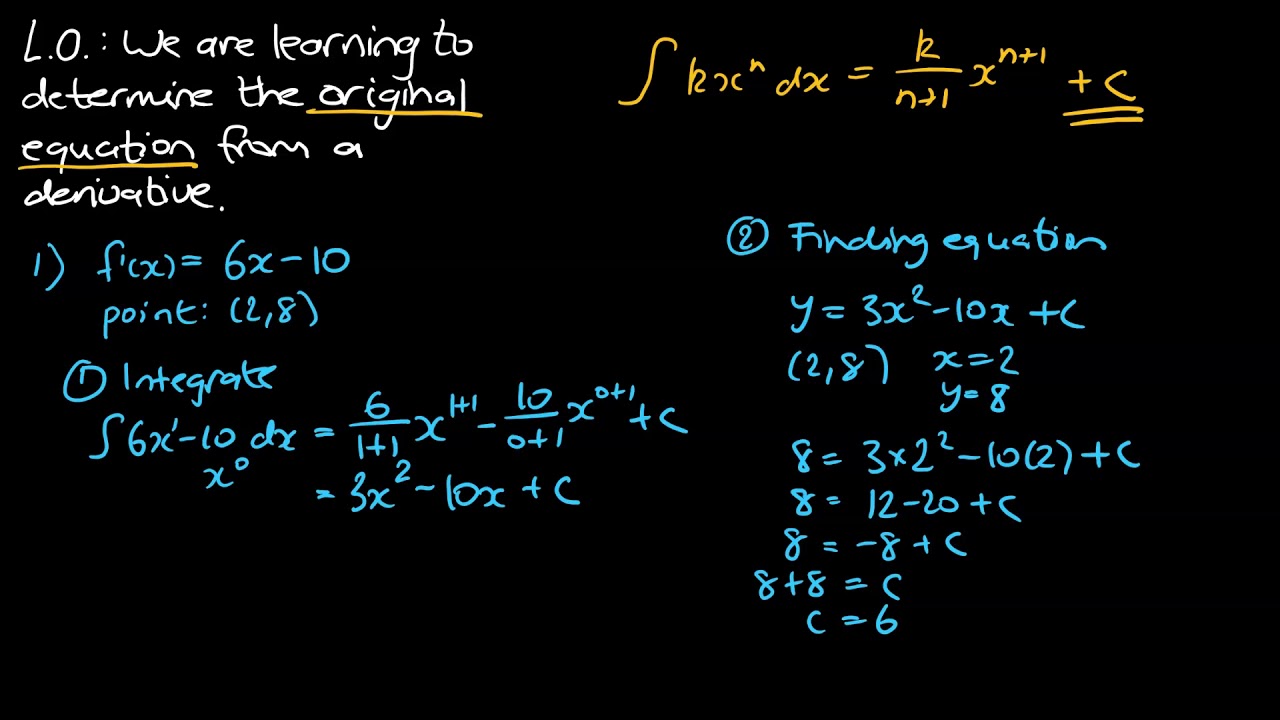 L.O.: We are learning to
determine the original
equation from a
derivative.
∫ kxⁿ dx = k/(n+1) xⁿ⁺¹ + C
1) f'(x) = 6x - 10
point: (2,8)
① Integrate
∫ 6x¹ - 10 dx = 6/(1+1) x¹⁺¹ - 10/(0+1) x⁰⁺¹ + C
x⁰
= 3x² - 10x + C
② Finding equation
y = 3x² - 10x + C
(2,8) x = 2
y = 8
8 = 3×2² - 10(2) + C
8 = 12 - 20 + C
8 = -8 + C
8+8 = C
C = 6